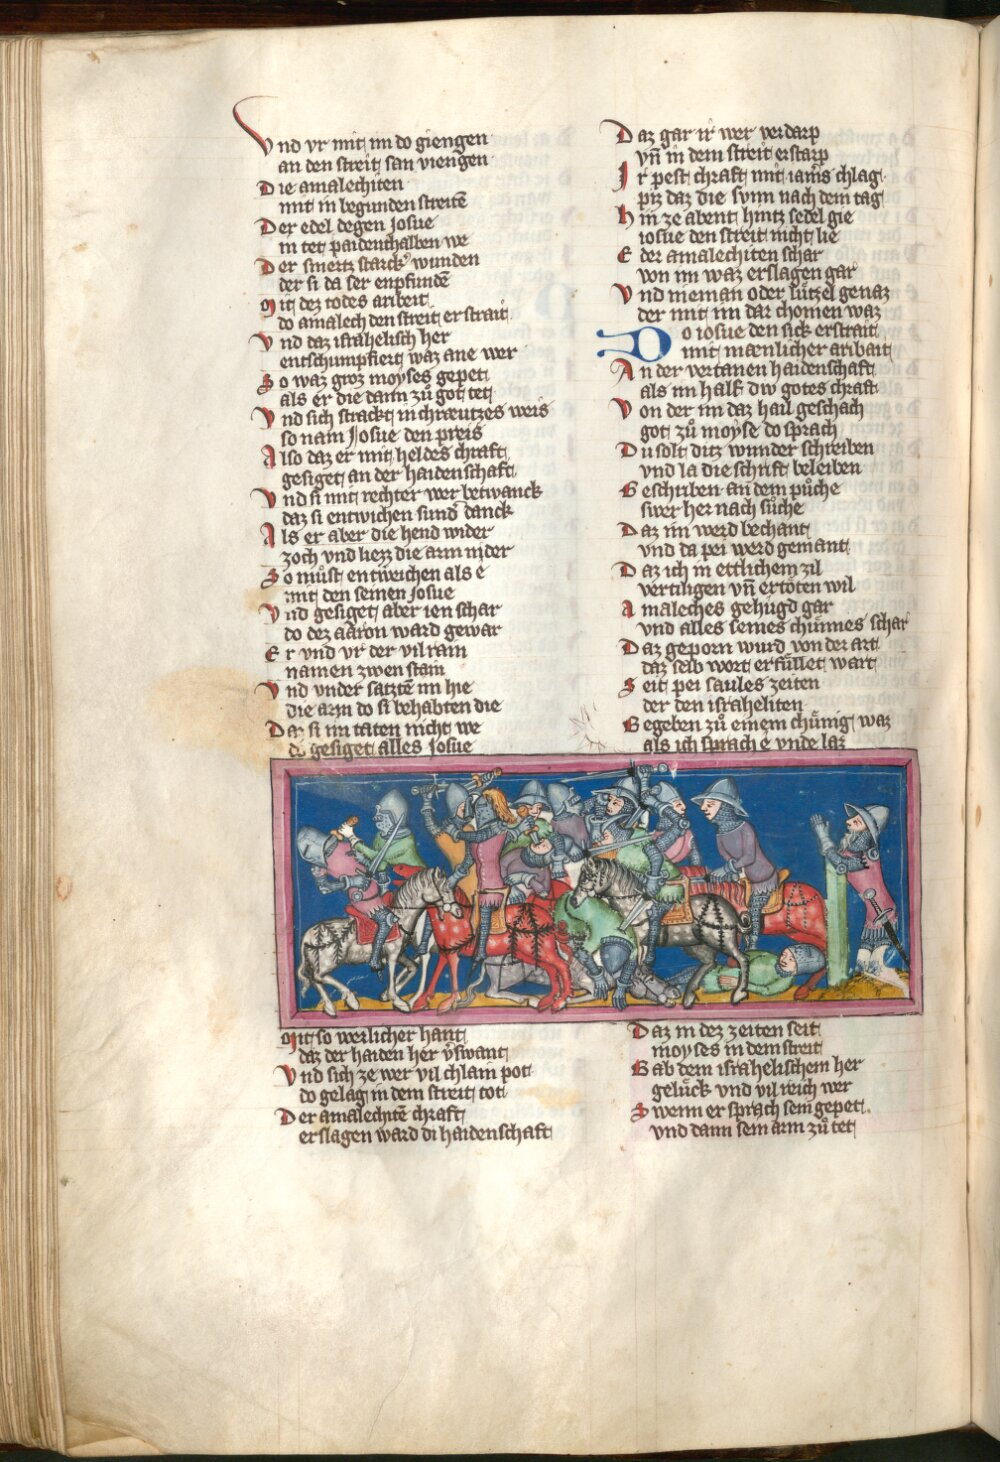 Vnd vr mit im do giengen
an den streit san viengen
Die amalechiten
mit in begunden streitē
Der edel degen Josue
in tet paidenthalben we
Der smertz starck wunden
der si da ser enpfundē
Mit dez todes aribeit
do amalech den streit erstrait
Vnd daz israhelisch her
entschumpfiert waz ane wer
So waz groz moyses gepet
als er die dann zů got tet
Vnd sich strackt in chræutzes weis
so nam Josue den preis
Also daz er mit heldes chraft
gesiget an der haidenschaft
Vnd si mit rechter wer betwanck
daz si entwichen sund danck
Als er aber die hend wider
zoch vnd liezz die arm nider
So můst entweichen als e
mit den seinen Josue
Vnd gesiget aber ien schar
do dez aaron ward gewar
Er vnd vr der vil ram
namen zwen stain
Vnd vnder satztē im hie
die arm do si behabten die
Daz si im taten nicht we
do gesiget alles Josue
Mit so werlicher hant
daz der haiden her v̄swant
Vnd sich ze wer vil chlam pot
do gelag in dem streit tot
Der amalechitē chraft
erslagen ward di haidenschaft
Daz gar ir wer verdarp
vn̄ in dem streit erstarp
Ir pest chraft mit iamers chlag
piz daz die sunn nach dem tag
Hin ze abent hintz sedel gie
iosue den streit nicht lie
E der amalechiten schar
von im waz erslagen gar
Vnd nieman oder lützel genaz
der mit im dar chomen waz
Do iosue den sick erstrait
mit mænlicher aribait
An der vertanen haidenschaft
als im half dw gotes chraft
Von der im daz hail geschach
got zů moyse do sprach
Du solt ditz wunder schreiben
vnd la die schrift beleiben
Geschriben an dem půche
swer her nach sůche
Daz im werd bechant
vnd da pei werd gemant
Daz ich in ettlichem zil
vertiligen vn̄ ertöten wil
Amaleches gehügd gar
vnd alles seines chünnes schar
Daz geporn wurd von der art
daz selb wort erfüllet wart
Seit pei saules zeiten
der den israheliten
Gegeben zů einem chünig waz
als ich sprach e vnde laz
Daz in dez zeiten seit
moyses in dem streit
Gab dem israhelischem her
gelück vnd vil reich wer
Swenn er sprach sein gepet
vnd dann sein arm zů tet